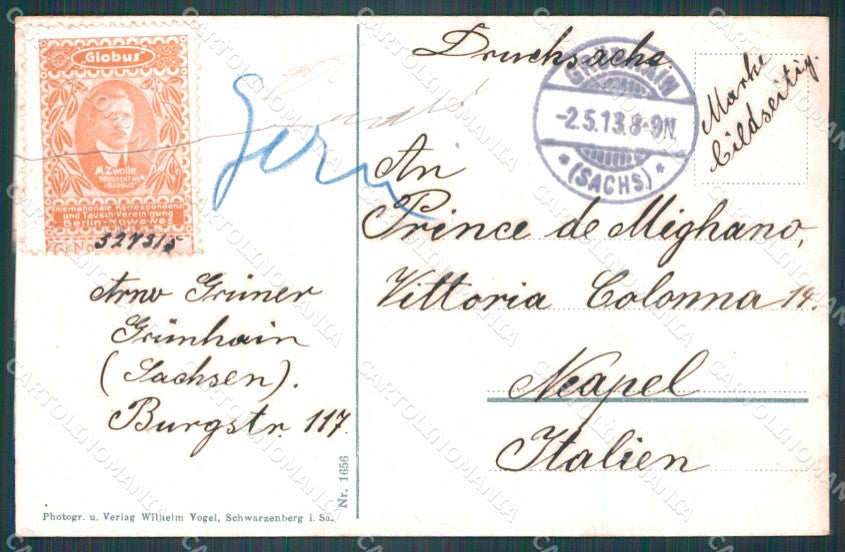 Globus
M. Zwolle
PRÄSIDENT DES
"GLOBUS"
Internationale Korrespondenz
und Tausch-Vereinigung
Berlin-Nowawes
Gr. No 52731b
Drucksache
GRÜNHAIN
-2.5.13.8-9N.
*(SACHS.)*
Marke
bildseitig.
An
Prince de Mighano,
Vittoria Colonna 14.
Neapel
Italien
Arno Grüner
Grünhain
(Sachsen).
Burgstr. 117.
Nr. 1656
Photogr. u. Verlag Wilhelm Vogel, Schwarzenberg i. Sa.
CARTOLINOMANIA